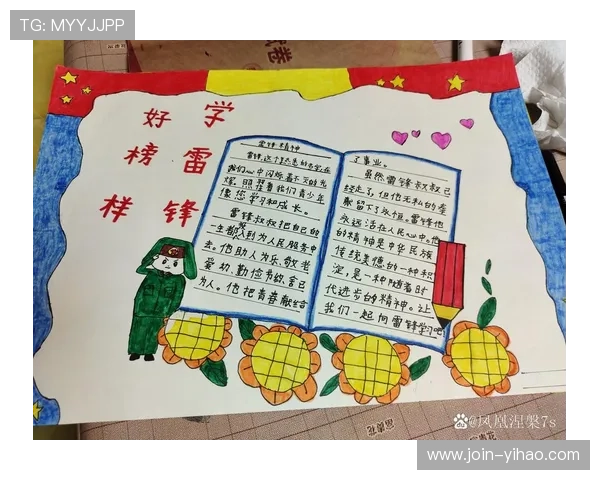 TG: MYYJJPP
卷
学雷锋
好榜样
雷锋精神
雷锋,这个熟悉的名字,在
我们心中闪烁着不灭的光
辉,照耀着我们青少年
学习和成长。
雷锋叔叔把自己的
一生都投入到为人民服务中
去。他助人为乐、敬老
爱幼、勤俭节约、舍己
为人。他把青春献给
了事业。
虽然雷锋叔叔已
经走了,但他无私的奉
献留下了永恒。雷锋他
永远活在人民心中。他
的精神是中华民族
传统美德的一种积
淀,是一种随着时
代进步的精神。让
我们一起向雷锋学习吧
富贵花
@凤凰涅槃7s
www.join-yihao.com